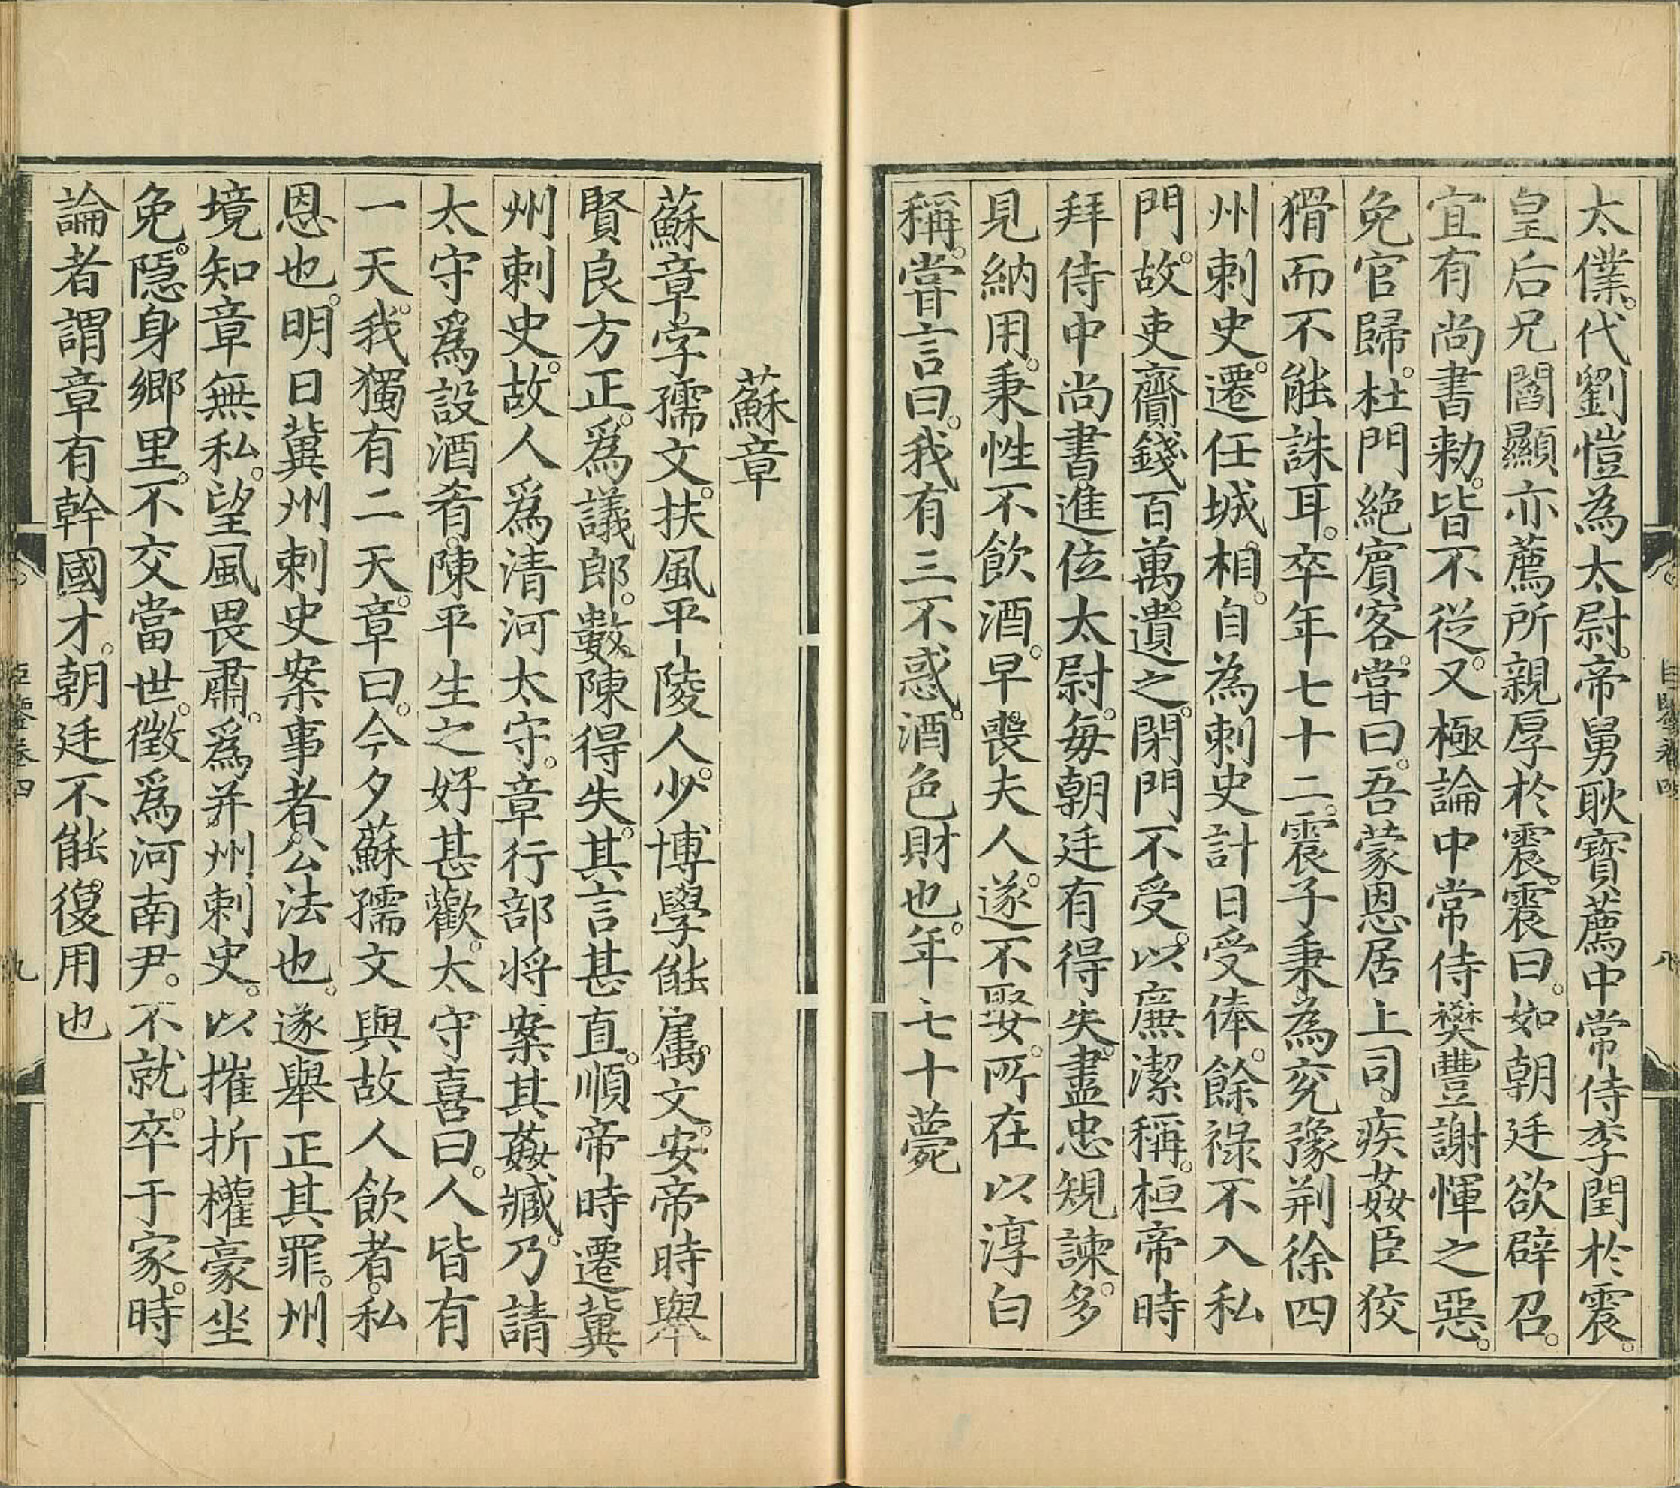 太僕。代劉愷為太尉。帝舅耿寶薦中常侍李閏於震。
皇后兄閻顯亦薦所親厚於震。震曰。如朝廷欲辟召。
宜有尚書勑。皆不從。又極論中常侍樊豐謝惲之惡。
免官歸。杜門絕賓客。嘗曰。吾蒙恩居上司。疾姦臣狡
猾而不能誅耳。卒年七十二。震子秉為兖豫荆徐四
州刺史。遷任城相。自為刺史計日受俸。餘祿不入私
門。故吏齎錢百萬遺之。閉門不受。以廉潔稱。桓帝時
拜侍中尚書進位太尉。每朝廷有得失。盡忠規諫。多
見納用。秉性不飲酒。早喪夫人。遂不娶。所在以淳白
稱。嘗言曰。我有三不惑。酒色財也。年七十薨
蘇章
蘇章。字孺文。扶風平陵人。少博學能属文。安帝時舉
賢良方正。爲議郎。數陳得失。其言甚直。順帝時遷冀
州刺史。故人爲清河太守。章行部將案其姦贓。乃請
太守爲設酒肴。陳平生之好甚歡。太守喜曰。人皆有
一天。我獨有二天。章曰。今夕蘇孺文與故人飲者。私
恩也。明日冀州刺史案事者。公法也。遂舉正其罪。州
境知章無私。望風畏肅。爲并州刺史。以摧折權豪坐
免。隱身鄉里。不交當世。徵爲河南尹。不就。卒于家。時
論者謂章有幹國才。朝廷不能復用也
九